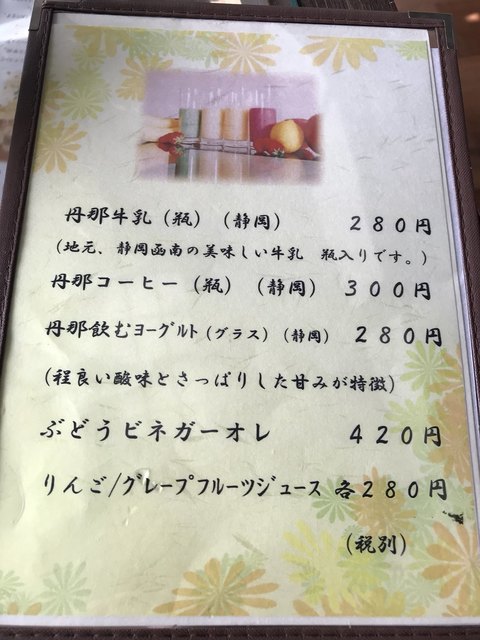 丹那牛乳（瓶）（静岡） 280円
（地元、静岡函南の美味しい牛乳 瓶入りです。）
丹那コーヒー（瓶）（静岡） 300円
丹那飲むﾖｰｸﾞﾙﾄ（グラス）（静岡） 280円
（程良い酸味とさっぱりした甘みが特徴）
ぶどうビネガーオレ 420円
りんご/ｸﾞﾚｰﾌﾟﾌﾙｰﾂｼﾞｭｰｽ 各280円
（税別）